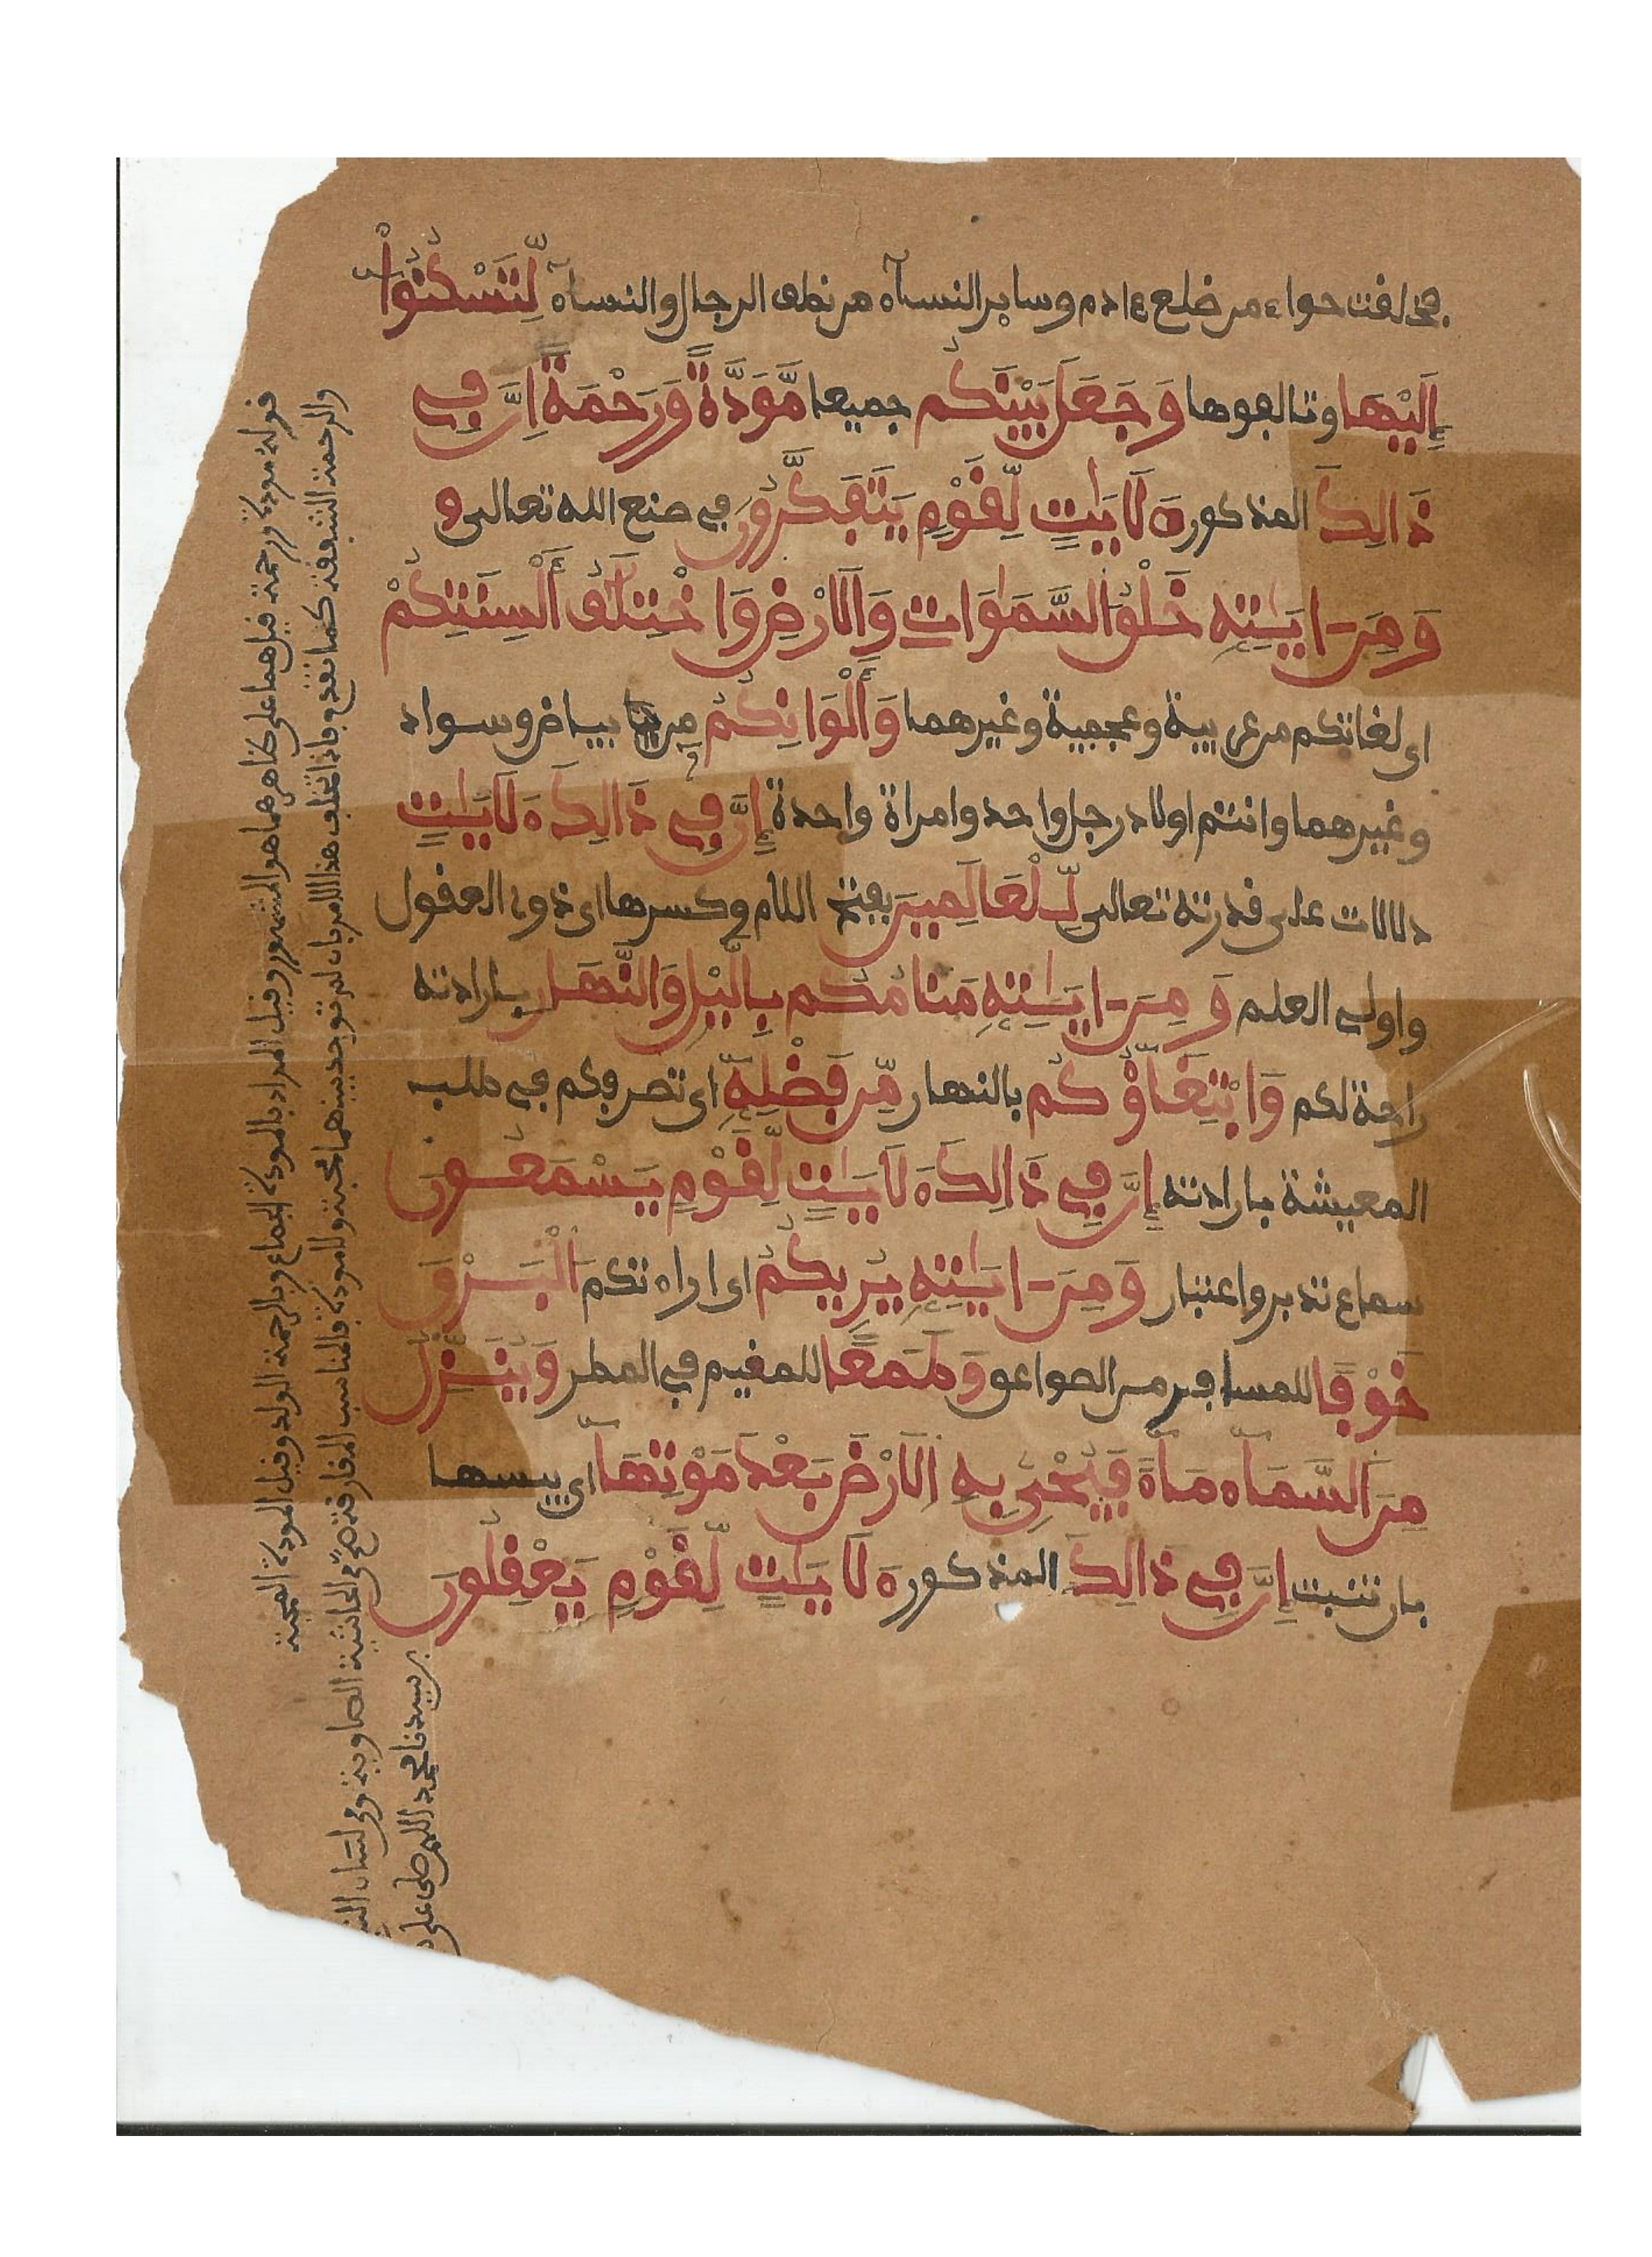 فخلقت حواء من ضلع ءادم وساير النساء من نطف الرجال والنساء لِّتَسْكُنُوٓاْ
إِلَيْهَا وتالفوها وَجَعَلَ بَيْنَكُم جميعا مَّوَدَّةً وَرَحْمَةً اِنَّ فِي
ذَالِكَ المذكورة لَأَيَٰتٍ لِّقَوْمٍ يَتَفَكَّرُونَ في صنع الله تعالى و
وَمِنَ ايَٰتِهِ خَلْقُ السَّمَٰوَاتِ وَالَارْضِ وَاخْتِلَٰفُ أَلْسِنَتِكُمْ
اى لغاتكم من عربية وعجمية وغيرهما وَأَلْوَانِكُمْ من بياض وسواد
وغيرهما وانتم اولاد رجل واحد وامراة واحدة إِنَّ فِي ذَالِكَ لَأَيَٰتٍ
دلالات على قدرته تعالى لِّلْعَالَمِينَ بفتح اللام وكسرها اى ذوى العقول
واولى العلم وَمِنَ ايَٰتِهِ مَنَامُكُم بِالَّيْلِ وَالنَّهَارِ بارادته
راحة لكم وَابْتِغَاؤُكُم بالنهار مِّن فَضْلِهِ أى تصرفكم في طلب
المعيشة بارادته إِنَّ فِي ذَالِكَ لَأَيَٰتٍ لِّقَوْمٍ يَسْمَعُونَ
سماع تدبر واعتبار وَمِنَ ايَٰتِهِ يُرِيكُمُ اى اراءتكم الْبَرْقَ
خَوْفًا للمسافر من الصواعق وَطَمَعًا للمقيم في المطر وَيُنَزِّلُ
مِنَ السَّمَاءِ مَاءً فَيُحْيِي بِهِ الَارْضَ بَعْدَ مَوْتِهَا أى يبسها
بان تنبت إِنَّ فِي ذَالِكَ المذكورة لَأَيَٰتٍ لِّقَوْمٍ يَعْقِلُونَ
قوله مودة ورحمة قيل هما على ظاهرهما هو المشهور وقيل المراد بالمودة الجماع وبالرحمة الولد وقيل المودة المحبة
والرحمة الشفقة كما تقدم فاذا تخلف هذا الامر بان لم توجد بينهما محبة ولا مودة فالمناسب المفارقة صح في الحاشية الصاوية وفي لسان
سيدنا محمد اللهم صل على